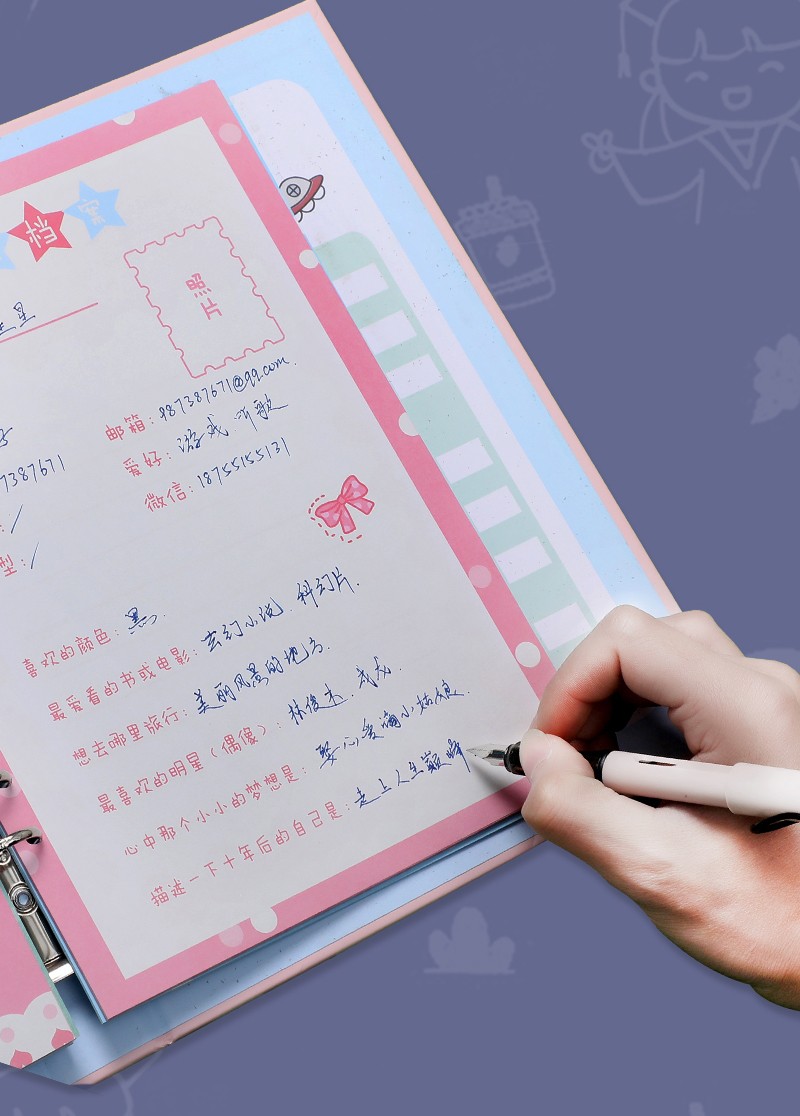 档 案
照片
邮箱：987387671@qq.com.
爱好：游戏 听歌
7387671
微信：18755155131
：/
型：/
喜欢的颜色：黑.
最爱看的书或电影：玄幻小说、科幻片.
想去哪里旅行：美丽风景的地方.
最喜欢的明星（偶像）：林俊杰、成龙.
心中那个小小的梦想是：娶心爱滴小姑娘.
描述一下十年后的自己是：走上人生巅峰